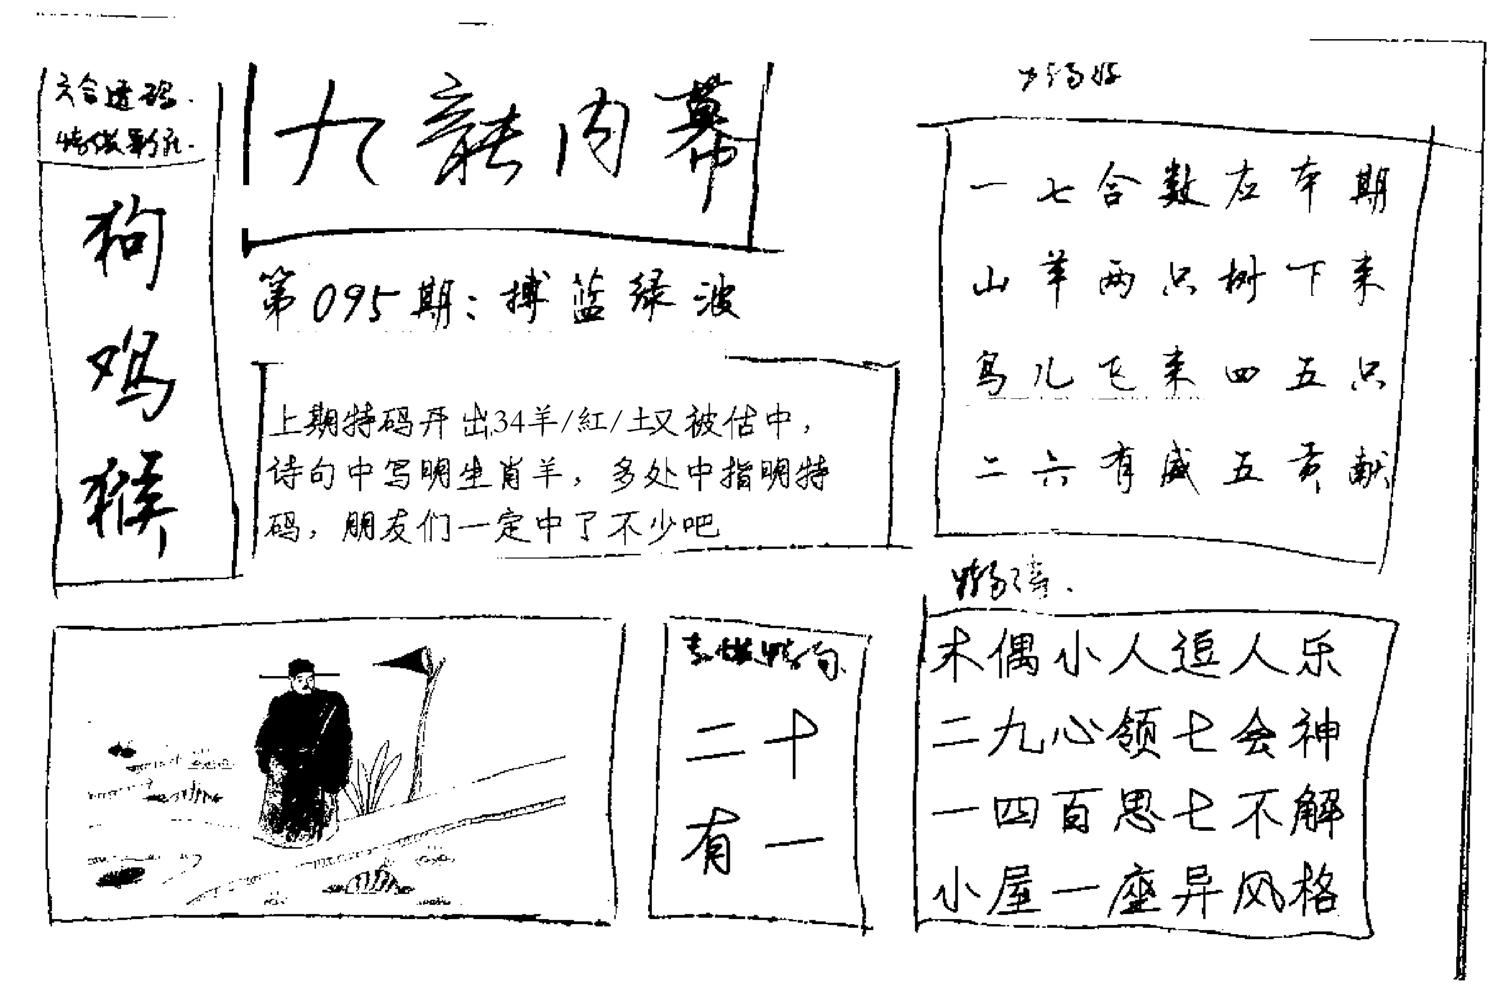 六合透码
狗
鸡
猴
九龍内幕
第095期：搏蓝绿波
上期特码开出34羊/紅/土又被估中，
诗句中写明生肖羊，多处中指明特
码，朋友们一定中了不少吧
一七合数在本期
山羊两只树下来
鸟儿飞来四五只
二六有威五贡献
木偶小人逗人乐
二九心领七会神
一四百思七不解
小屋一座异风格
二十
有一